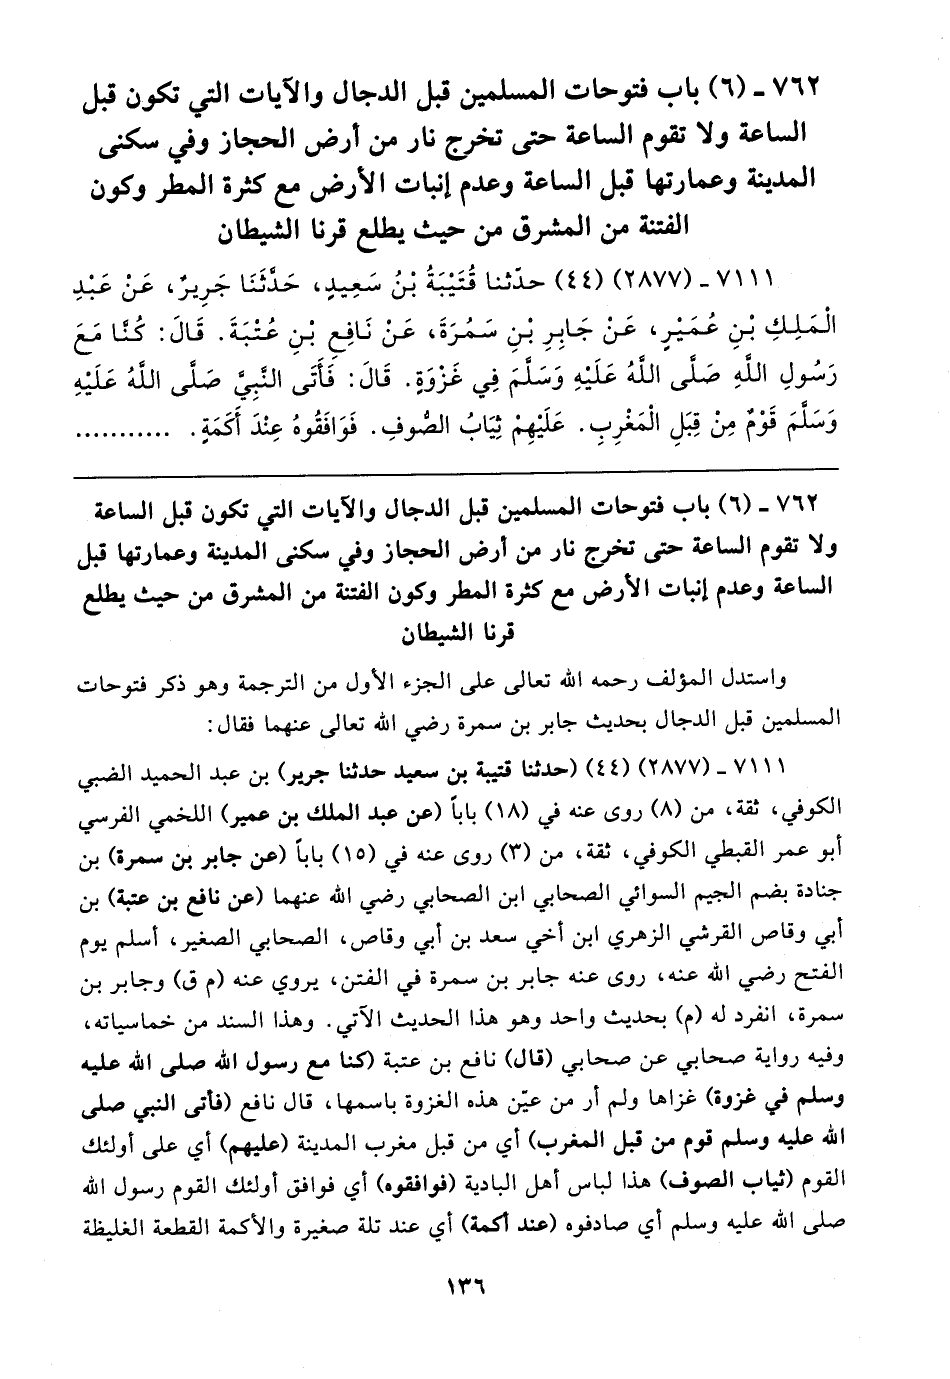 ٧٦٢ ـ (٦) باب فتوحات المسلمين قبل الدجال والآيات التي تكون قبل
الساعة ولا تقوم الساعة حتى تخرج نار من أرض الحجاز وفي سكنى
المدينة وعمارتها قبل الساعة وعدم إنبات الأرض مع كثرة المطر وكون
الفتنة من المشرق من حيث يطلع قرنا الشيطان
٧١١١ ـ (٢٨٧٧) (٤٤) حدّثنا قُتَيْبَةُ بْنُ سَعِيدٍ، حَدَّثَنَا جَرِيرٌ، عَنْ عَبْدِ
الْمَلِكِ بْنِ عُمَيْرٍ، عَنْ جَابِرِ بْنِ سَمُرَةَ، عَنْ نَافِعِ بْنِ عُتْبَةَ. قَالَ: كُنَّا مَعَ
رَسُولِ اللَّهِ صَلَّى اللَّهُ عَلَيْهِ وَسَلَّمَ فِي غَزْوَةٍ. قَالَ: فَأَتَى النَّبِيَّ صَلَّى اللَّهُ عَلَيْهِ
وَسَلَّمَ قَوْمٌ مِنْ قِبَلِ الْمَغْرِبِ. عَلَيْهِمْ ثِيَابُ الصُّوفِ. فَوَافَقُوهُ عِنْدَ أَكَمَةٍ. ...........
٧٦٢ ـ (٦) باب فتوحات المسلمين قبل الدجال والآيات التي تكون قبل الساعة
ولا تقوم الساعة حتى تخرج نار من أرض الحجاز وفي سكنى المدينة وعمارتها قبل
الساعة وعدم إنبات الأرض مع كثرة المطر وكون الفتنة من المشرق من حيث يطلع
قرنا الشيطان
واستدل المؤلف رحمه الله تعالى على الجزء الأول من الترجمة وهو ذكر فتوحات
المسلمين قبل الدجال بحديث جابر بن سمرة رضي الله تعالى عنهما فقال:
٧١١١ ـ (٢٨٧٧) (٤٤) (حدثنا قتيبة بن سعيد حدثنا جرير) بن عبد الحميد الضبي
الكوفي، ثقة، من (٨) روى عنه في (١٨) باباً (عن عبد الملك بن عمير) اللخمي الفرسي
أبو عمر القبطي الكوفي، ثقة، من (٣) روى عنه في (١٥) باباً (عن جابر بن سمرة) بن
جنادة بضم الجيم السوائي الصحابي ابن الصحابي رضي الله عنهما (عن نافع بن عتبة) بن
أبي وقاص القرشي الزهري ابن أخي سعد بن أبي وقاص، الصحابي الصغير، أسلم يوم
الفتح رضي الله عنه، روى عنه جابر بن سمرة في الفتن، يروي عنه (م ق) وجابر بن
سمرة، انفرد له (م) بحديث واحد وهو هذا الحديث الآتي. وهذا السند من خماسياته،
وفيه رواية صحابي عن صحابي (قال) نافع بن عتبة (كنا مع رسول الله صلى الله عليه
وسلم في غزوة) غزاها ولم أر من عيّن هذه الغزوة باسمها، قال نافع (فأتى النبي صلى
الله عليه وسلم قوم من قبل المغرب) أي من قبل مغرب المدينة (عليهم) أي على أولئك
القوم (ثياب الصوف) هذا لباس أهل البادية (فوافقوه) أي فوافق أولئك القوم رسول الله
صلى الله عليه وسلم أي صادفوه (عند أكمة) أي عند تلة صغيرة والأكمة القطعة الغليظة
١٣٦